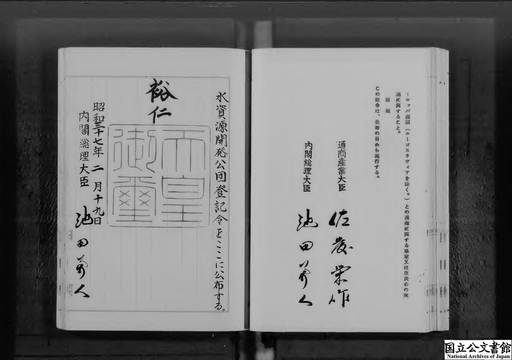 ーロッパ諸国(ユーゴスラヴィアを除く。)との通商に関する
通に関すること。
附則
この政令は、公布の日から施行する。
通商産業大臣 佐藤栄作
内閣総理大臣 池田勇人
水資源開発公団登記令をここに公布する。
裕仁
天皇御璽
昭和三十七年二月十九日
内閣総理大臣 池田勇人
国立公文書館
National Archives of Japan